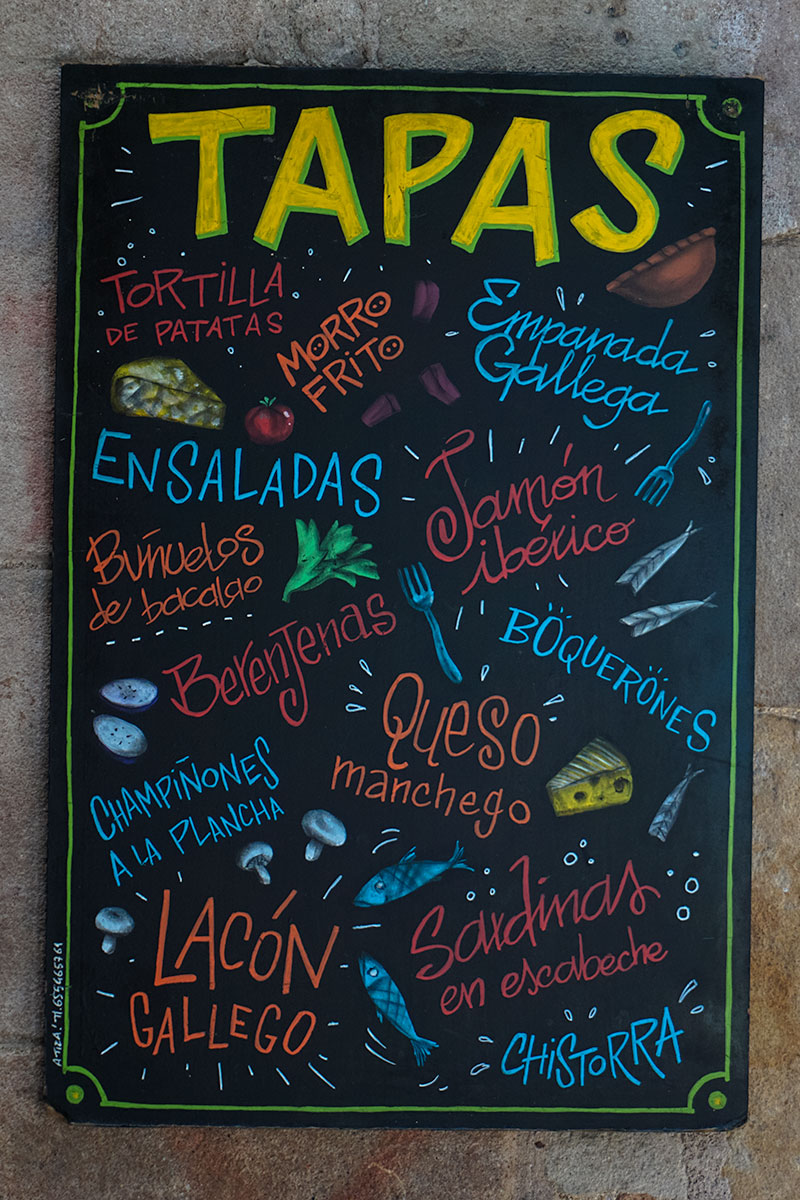 TAPAS
TORTILLA
DE PATATAS
MORRO
FRITO
Empanada
Gallega
ENSALADAS
Jamón
ibérico
Buñuelos
de bacalao
Berenjenas
BOQUERONES
Queso
manchego
CHAMPIÑONES
A LA PLANCHA
LACÓN
GALLEGO
Sardinas
en escabeche
CHISTORRA